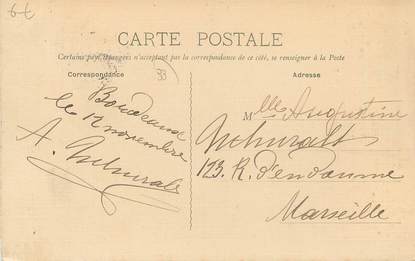 6€
CARTE POSTALE
Certains pays étrangers n'acceptant pas la correspondance de ce côté, se renseigner à la Poste
Correspondance
33
Adresse
le 12 novembre
A.
Mlle Augustine
123. R. d'endoume
Marseille